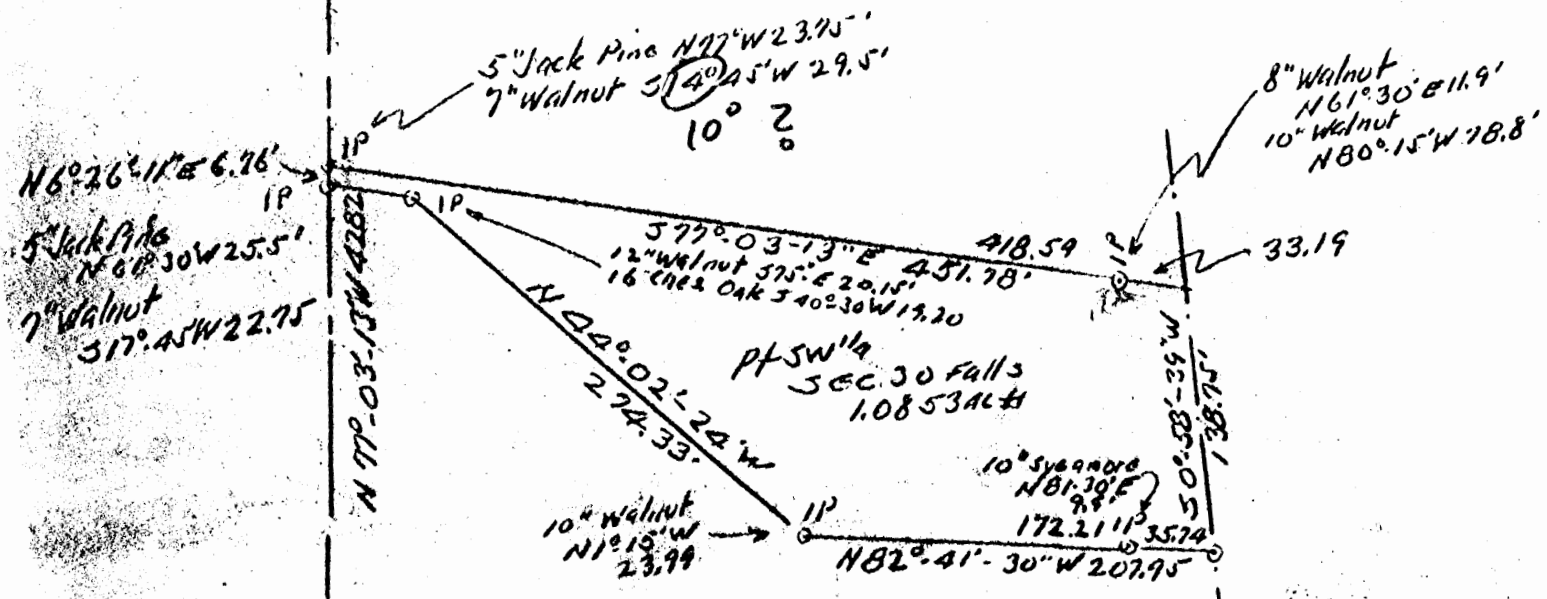 5" Jack Pine N77°W 23.75'
7" Walnut S14°45'W 29.5'
10° ?
8" Walnut
N61°30'E 11.9'
10" Walnut
N80°.15'W 78.8'
IP
N6°-26'-11"E 6.76'
IP
IP
5" Jack Pine
N61°30W 25.5'
7" Walnut
S17°.45W 22.75
N 77°-03'-13"W 42.82
S77°-03-13"E 418.59
451.78'
IP
33.19
12" Walnut S75°.E 20.15'
16" Ches Oak S40°30W 19.20
N44°.02'-24"W
274.33
Pt SW 1/4
SEC. 30 Falls
1.0853 Ac
S0°-58'-39"W
138.75'
10" Sycamore
N81.30'E
9.9'
10" Walnut
N1°15'W
23.99
IP
172.21 IP 35.74
N82°-41'-30"W 207.95